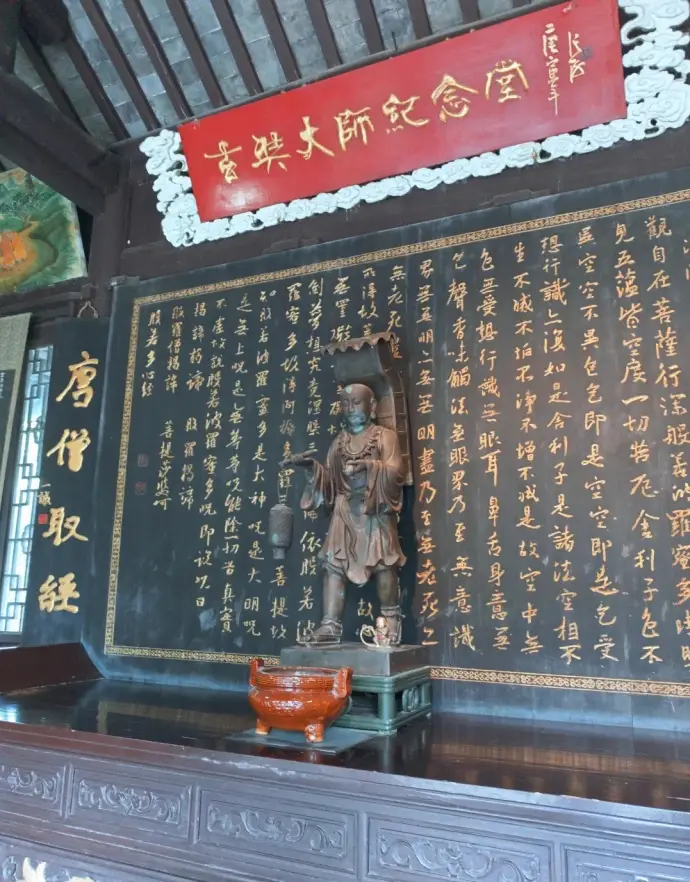 玄奘大师纪念堂
觀自在菩薩行深般若波羅蜜多時
見五蘊皆空度一切苦厄舍利子色不
異空空不異色色即是空空即是色受
想行識亦復如是舍利子是諸法空相不
生不滅不垢不淨不增不減是故空中無
色無受想行識無眼耳鼻舌身意無
色聲香味觸法無眼界乃至無意識
界無無明亦無無明盡乃至無老死亦
無老死盡
所得故
無罣礙 故
倒夢想究竟涅槃三 佛依般若波
羅蜜多故得阿耨多羅 菩提故
知般若波羅蜜多是大神咒是大明咒
是無上咒是無等等咒能除一切苦真實
不虛故說般若波羅蜜多咒即說咒曰
揭諦揭諦 般羅揭諦
般羅僧揭諦 菩提莎婆訶
般若多心經
唐僧取经
一诚